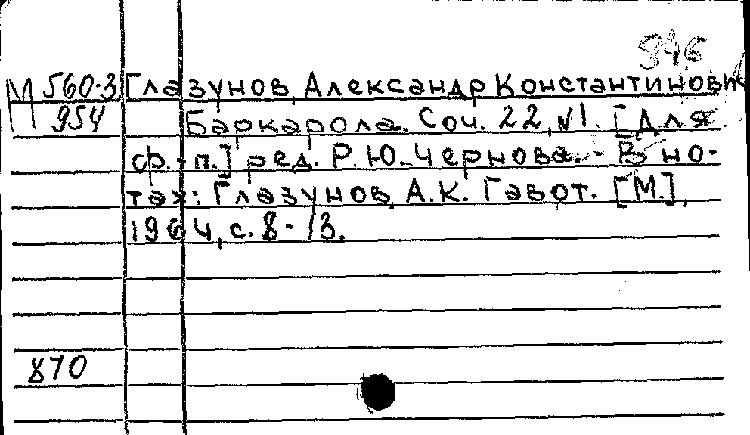 946
М 560-3 Глазунов, Александр Константинович
954 Баркарола. Соч. 22, №1. [Для
ф.-п.] ред. Р.Ю. Чернова. - В но-
тах: Глазунов А.К. Гавот. [М.],
1964, с. 8-13.
870